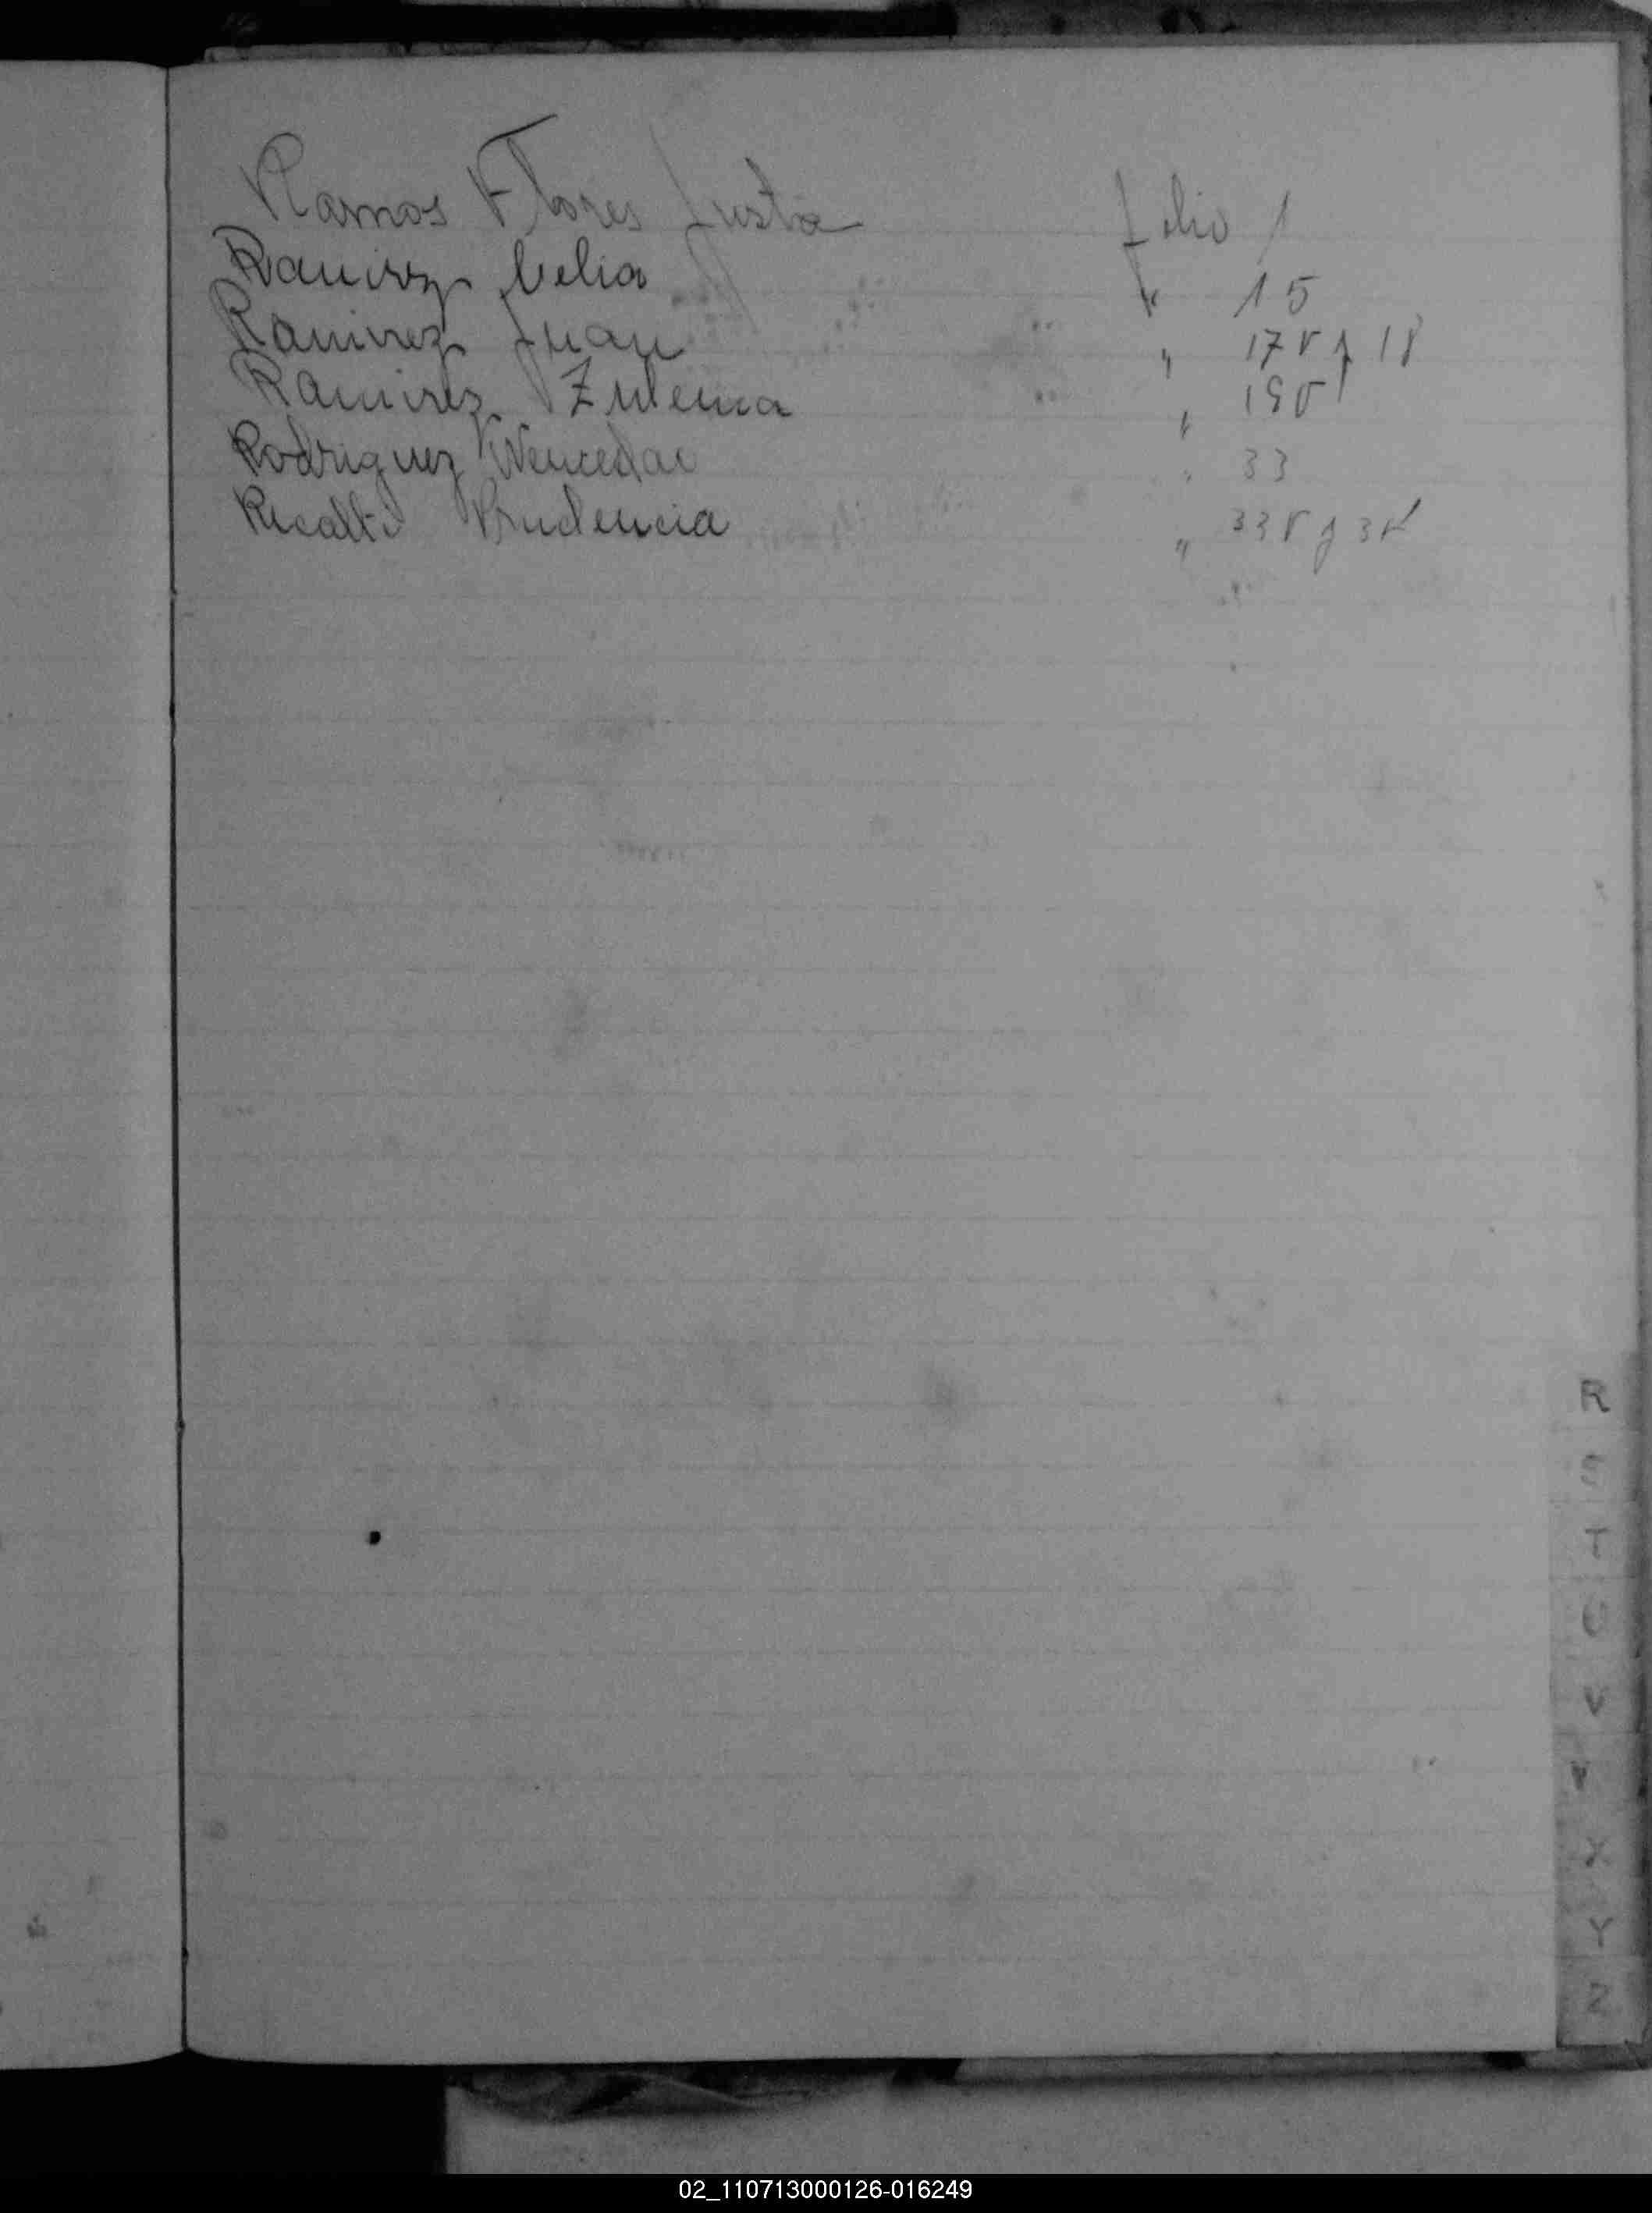 Ramos Flores Justa folio 1
Ramirez Celia " 15
Ramirez Juan " 17 v y 18
Ramirez Zulema " 19 v
Rodriguez Wenceslao " 33
Ricalti Prudencia " 33 v y 34
R
S
T
U
V
X
Y
Z
02_110713000126-016249